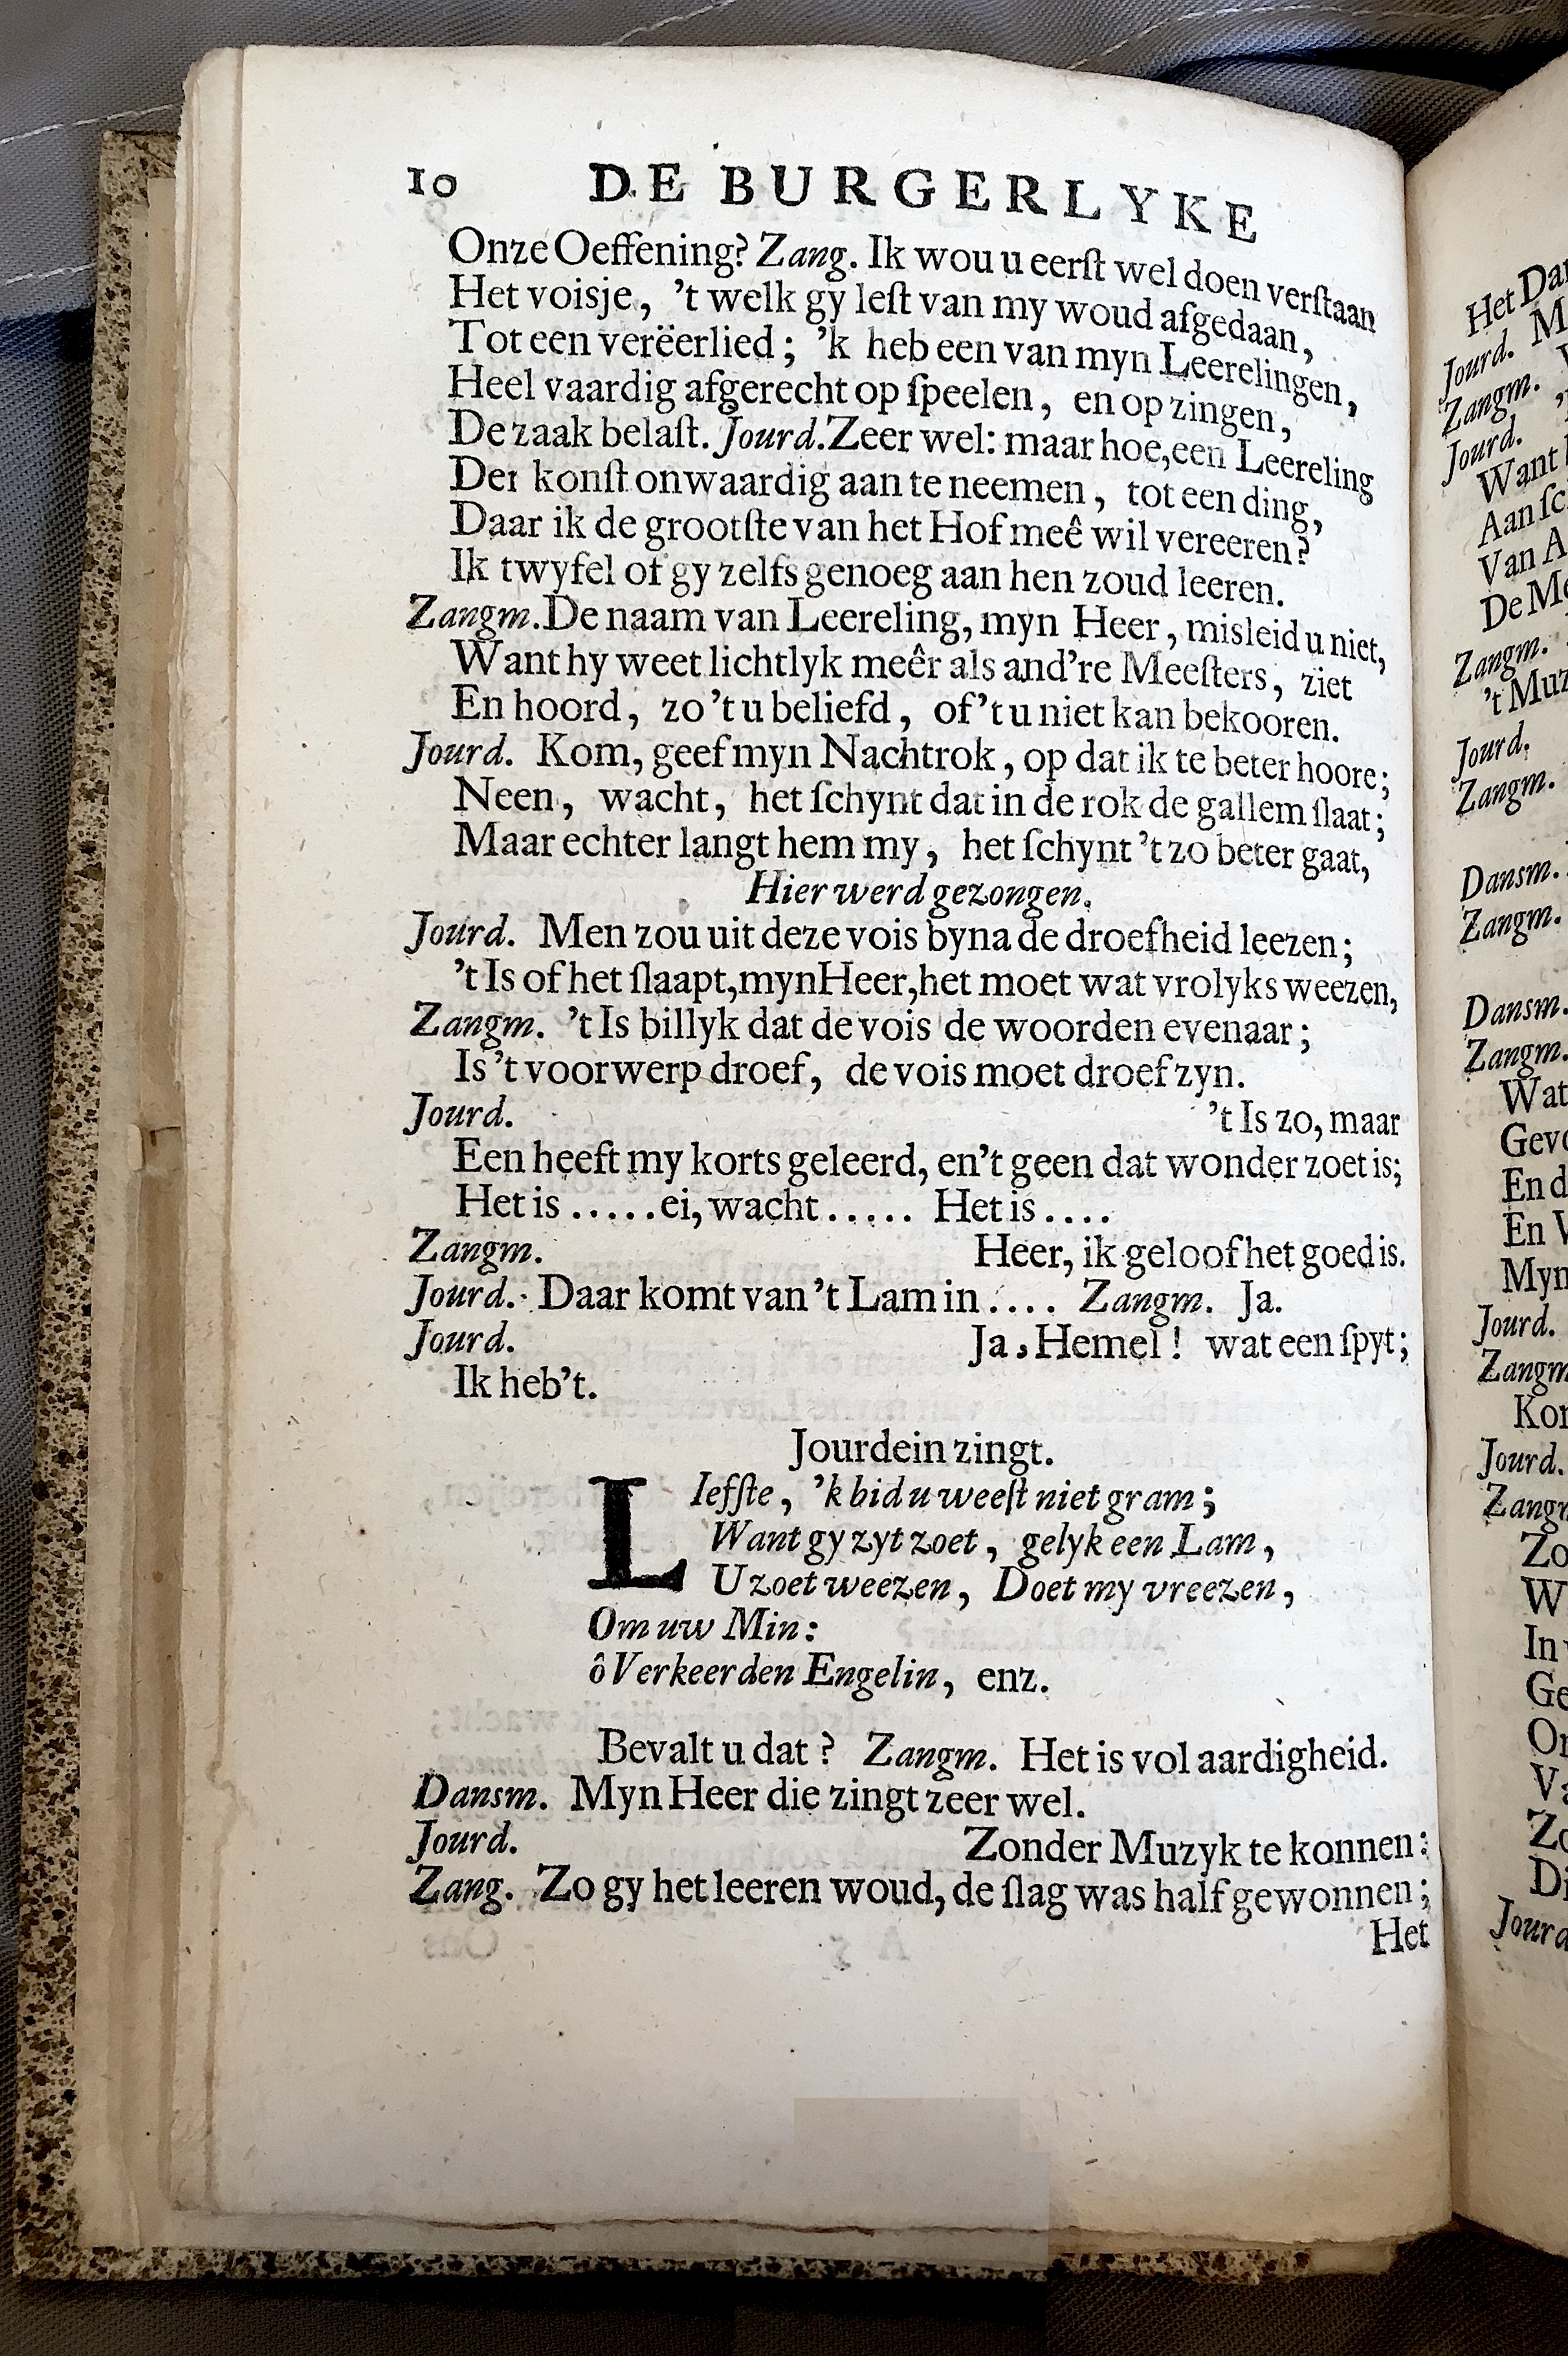 10 DE BURGERLYKE
Onze Oeffening? Zang. Ik wou u eerſt wel doen verſtaan
Het voisje, 't welk gy leſt van my woud afgedaan,
Tot een verëerlied; 'k heb een van myn Leerelingen,
Heel vaardig afgerecht op ſpeelen, en op zingen,
De zaak belaſt. Jourd. Zeer wel: maar hoe, een Leereling
Der konſt onwaardig aan te neemen, tot een ding,
Daar ik de grootſte van het Hof meê wil vereeren?
Ik twyfel of gy zelfs genoeg aan hen zoud leeren.
Zangm. De naam van Leereling, myn Heer, misleid u niet,
Want hy weet lichtlyk meêr als and're Meeſters, ziet
En hoord, zo 't u beliefd, of 't u niet kan bekooren.
Jourd. Kom, geef myn Nachtrok, op dat ik te beter hoore;
Neen, wacht, het ſchynt dat in de rok de gallem ſlaat;
Maar echter langt hem my, het ſchynt 't zo beter gaat,
Hier werd gezongen.
Jourd. Men zou uit deze vois byna de droefheid leezen;
't Is of het ſlaapt, myn Heer, het moet wat vrolyks weezen,
Zangm. 't Is billyk dat de vois de woorden evenaar;
Is 't voorwerp droef, de vois moet droef zyn.
Jourd. 't Is zo, maar
Een heeft my korts geleerd, en 't geen dat wonder zoet is;
Het is ..... ei, wacht ..... Het is ....
Zangm. Heer, ik geloof het goed is.
Jourd. Daar komt van 't Lam in .... Zangm. Ja.
Jourd. Ja, Hemel! wat een ſpyt;
Ik heb't.
Jourdein zingt.
LIefſte, 'k bid u weeſt niet gram;
Want gy zyt zoet, gelyk een Lam,
U zoet weezen, Doet my vreezen,
Om uw Min:
ô Verkeerden Engelin, enz.
Bevalt u dat? Zangm. Het is vol aardigheid.
Dansm. Myn Heer die zingt zeer wel.
Jourd. Zonder Muzyk te konnen:
Zang. Zo gy het leeren woud, de ſlag was half gewonnen;
Het
Het
Jourd.
Zangm.
Jourd.
Want
Van
Zangm.
Jourd.
Zangm.
Dansm.
Zangm.
Dansm.
Zangm.
Wat
En
Jourd.
Jourd.